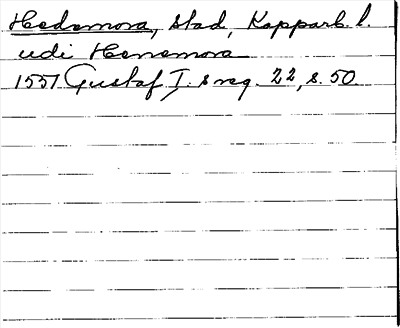 Hedemora, stad, Kopparb. l.
udi Henemora
1551 Gustaf I:s reg. 22, s. 50.